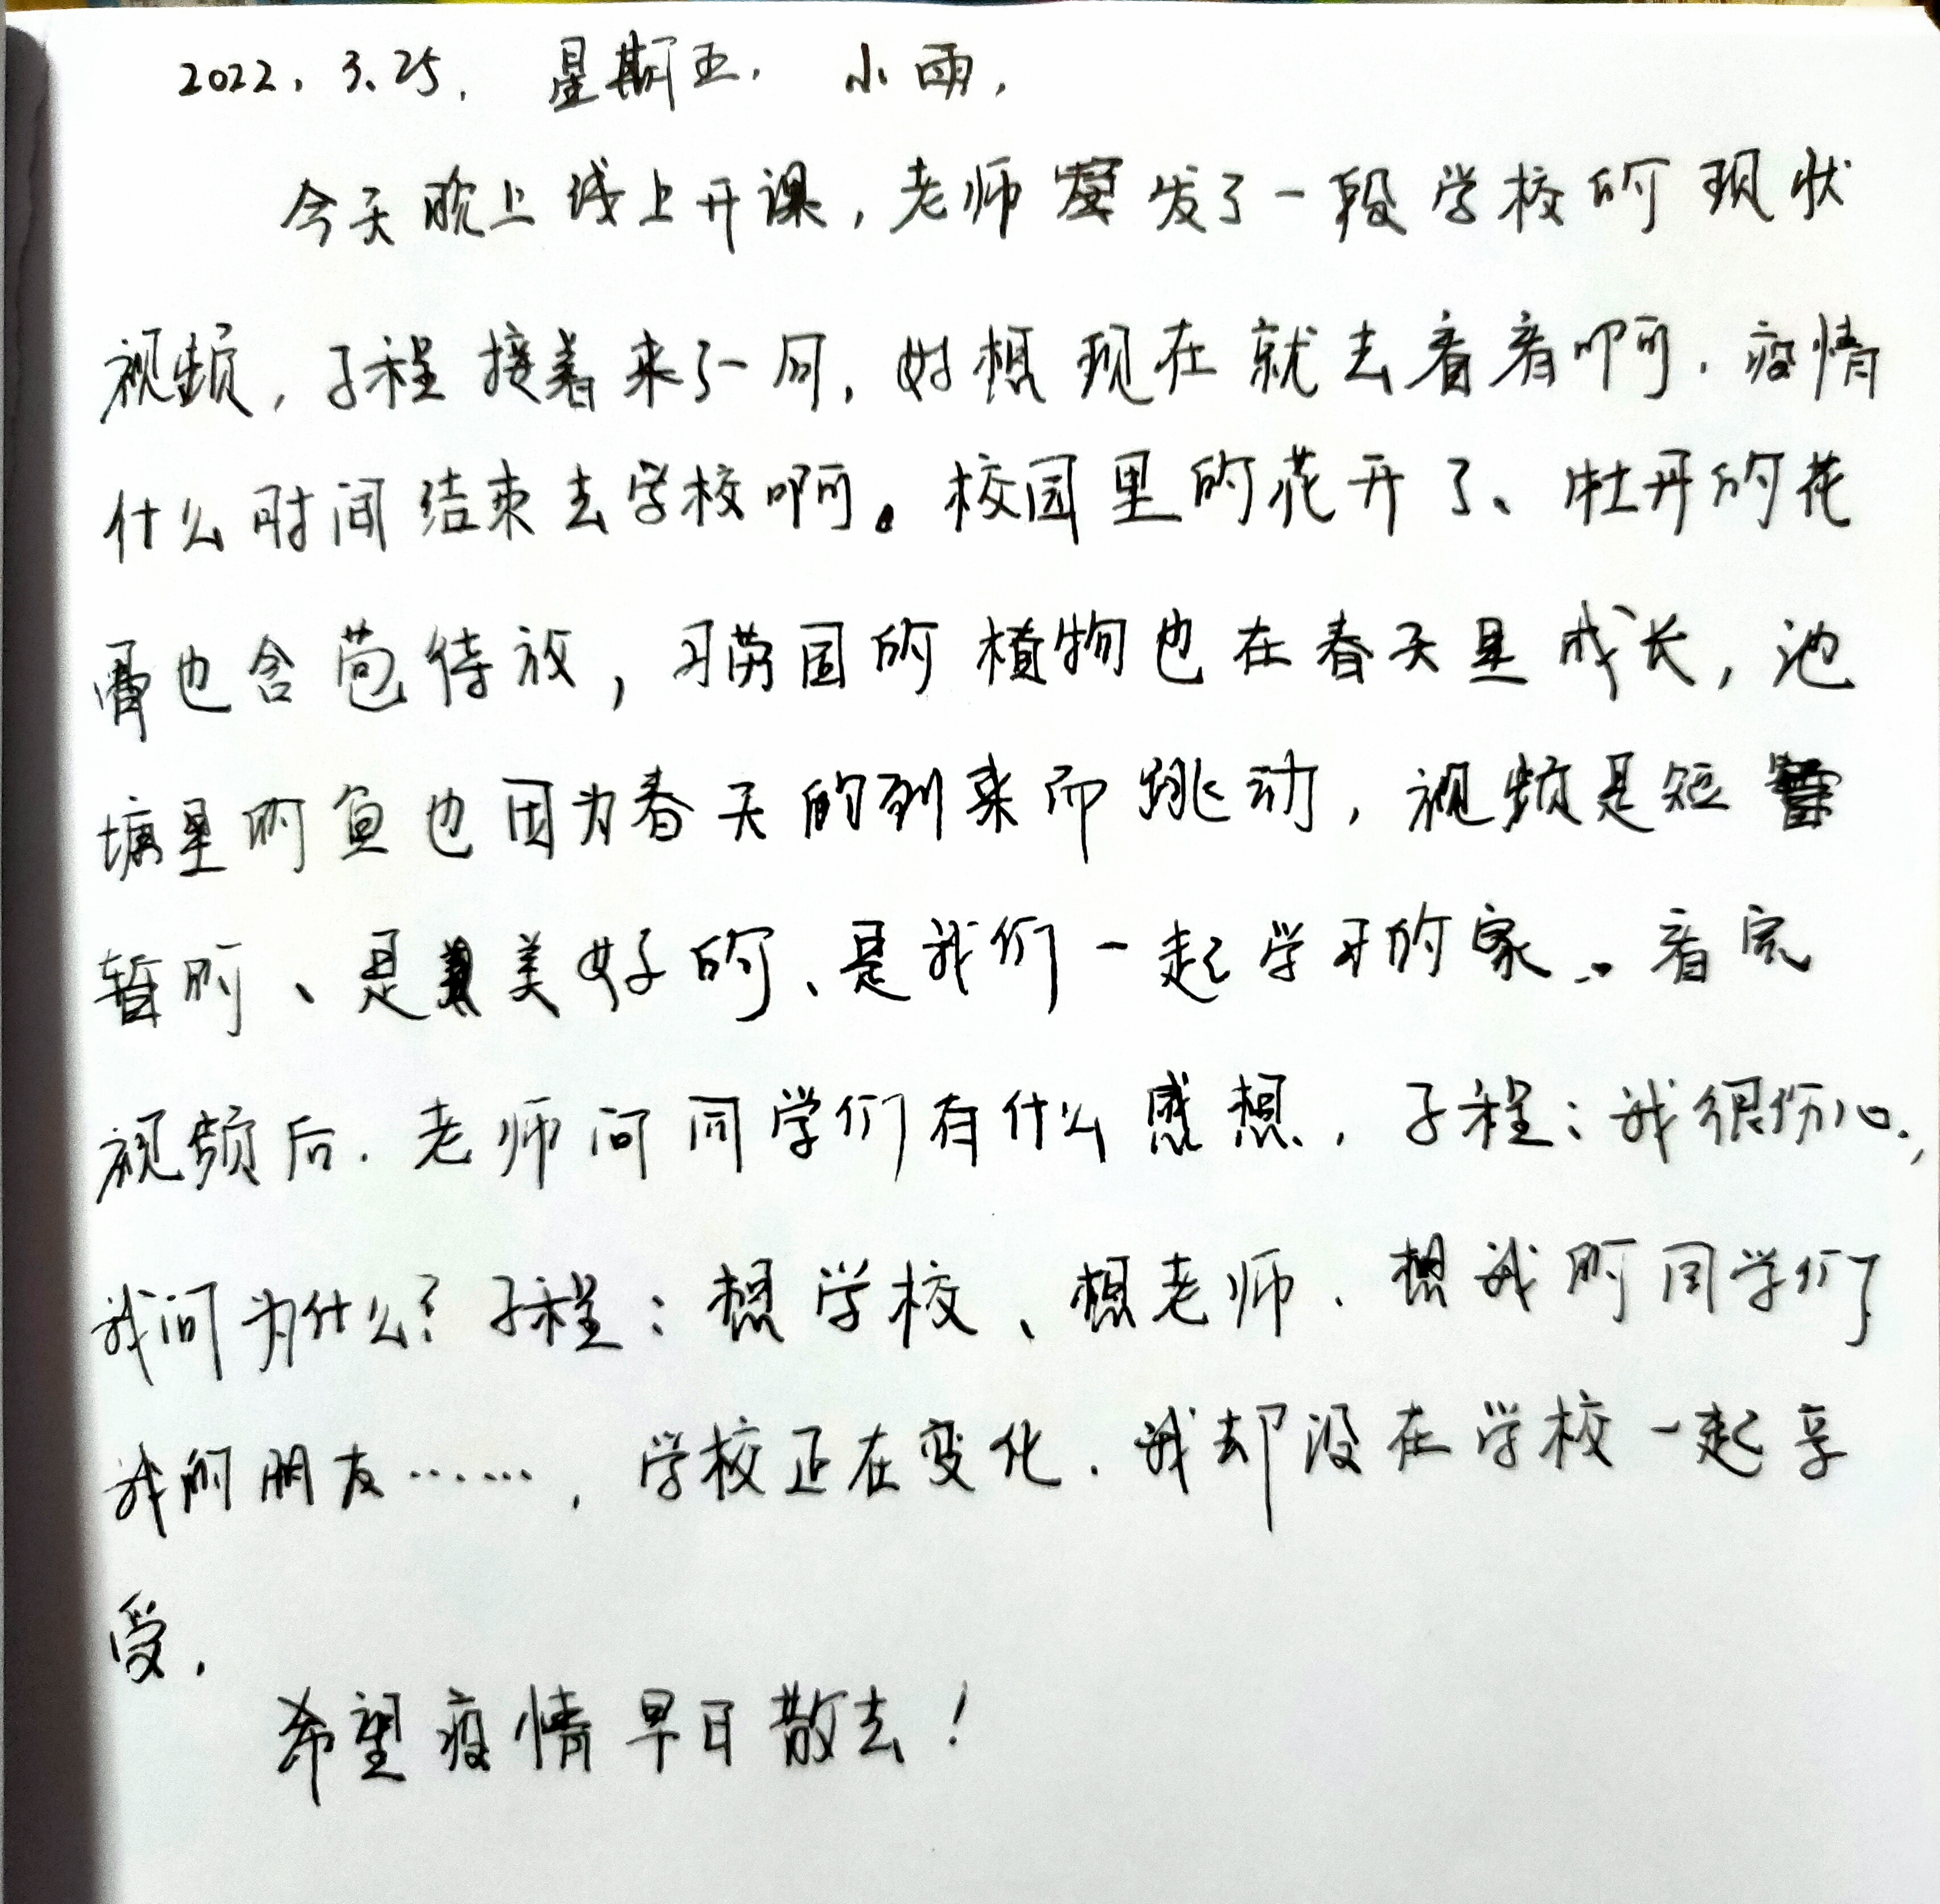 2022.3.25. 星期五. 小雨.
今天晚上线上开课,老师发了一段学校的现状
视频,子程接着来了一句,好想现在就去看看啊.疫情
什么时间结束去学校啊。校园里的花开了、牡丹的花
也含苞待放,习劳园的植物也在春天里成长,池
塘里的鱼也因为春天的到来而跳动,视频是短
暂的、是美好的、是我们一起学习的家。看完
视频后.老师问同学们有什么感想.子程:我很伤心.,
我问为什么?子程:想学校、想老师、想我的同学们
我的朋友……,学校正在变化.我却没在学校一起享
受.
希望疫情早日散去!